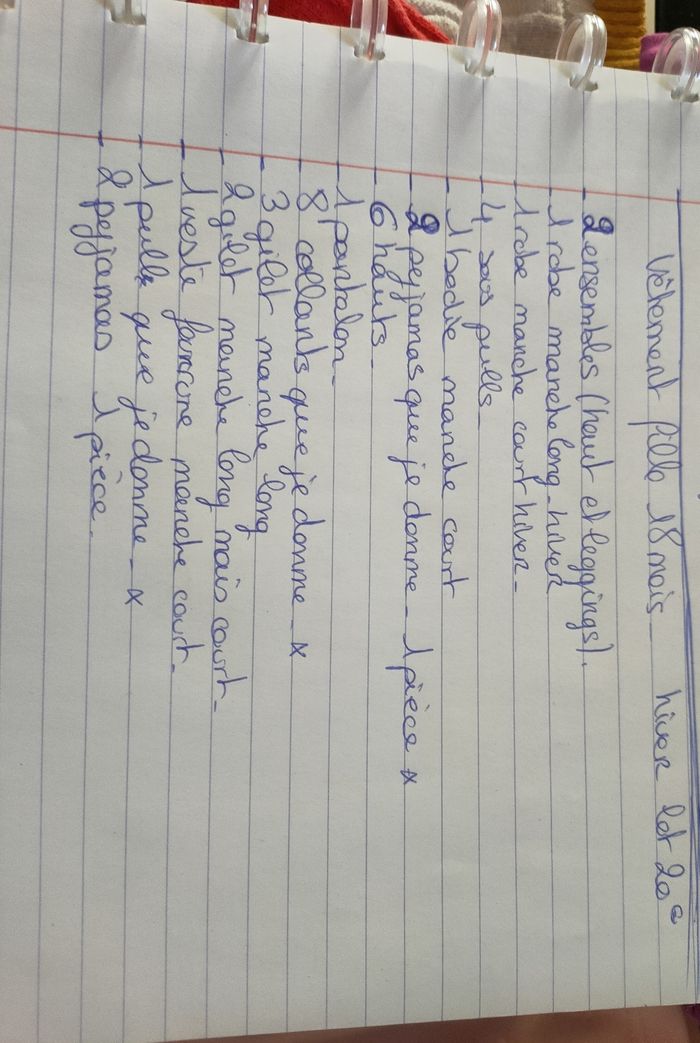 Vêtement fille 18 mois - hiver lot 20€
- 2 ensembles (haut et leggings).
- 1 robe manche long - hiver
- 1 robe manche court hiver -
- 4 sous pulls
- 1 bodie manche court
- 2 peyjamas que je donne - 1 pièce x
- 6 hauts.
- 1 pantalon -
- 8 collants que je donne - x
- 3 gilet manche long
- 2 gilet manche long mais court -
- 1 veste manche court -
- 1 pulls que je donne - x
- 2 peyjamas 1 pièce.